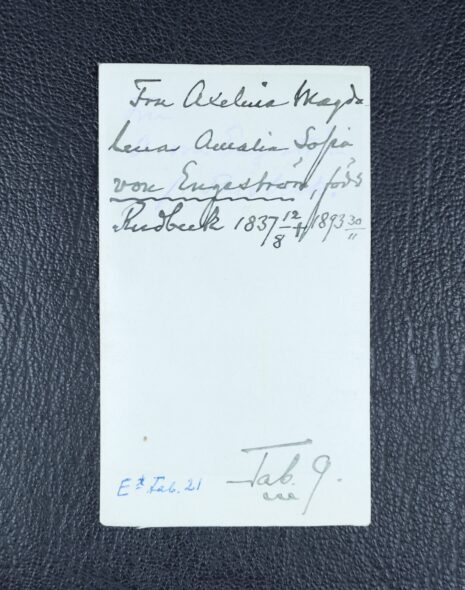 Fru Axelina Magda
lena Amalia Sofia
von Engeström, född
Rudbeck 1837 12/8 † 1893 30/11
Tab. 9.
Et Tab. 21